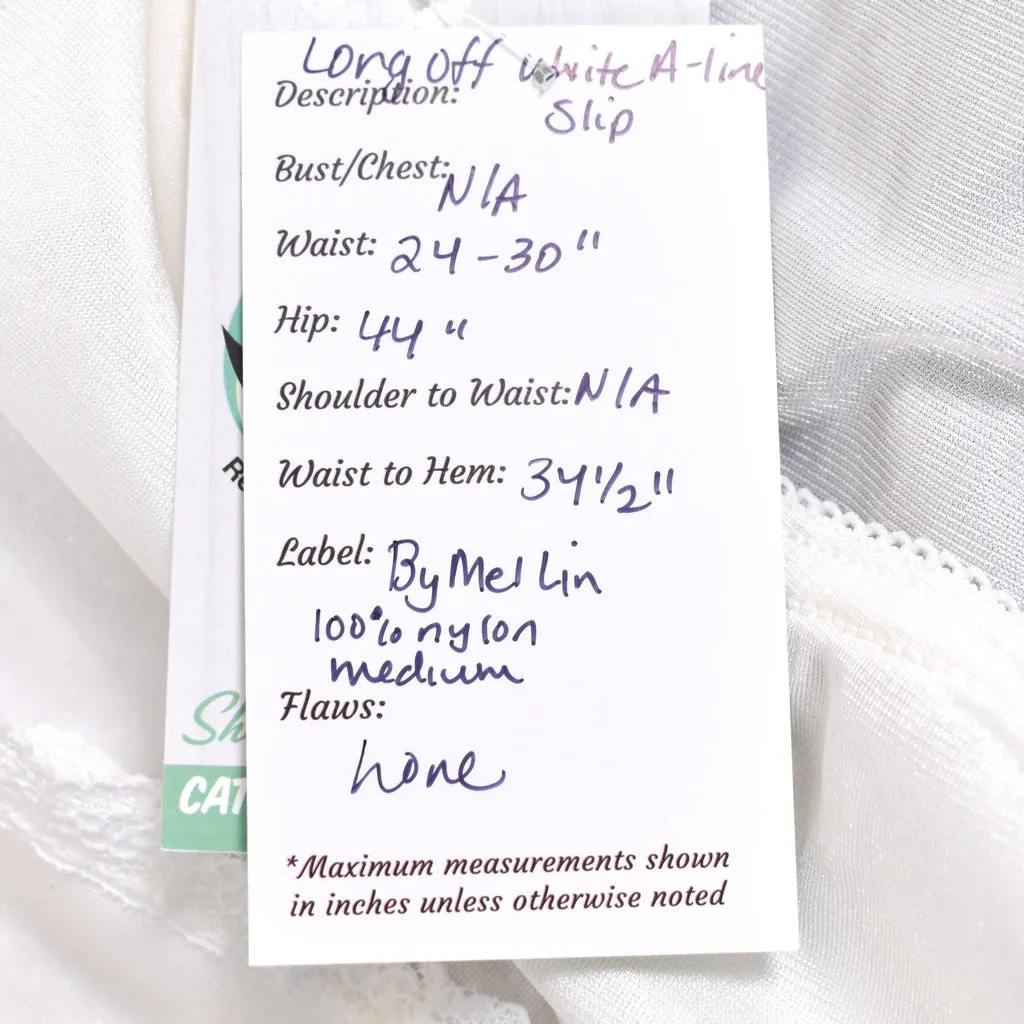 Long off white A-line
Description:
Slip
Bust/Chest: N/A
Waist: 24-30"
Hip: 44"
Shoulder to Waist: N/A
Waist to Hem: 34 1/2"
Label: By Mel Lin
100% nylon
medium
Flaws:
none
*Maximum measurements shown
in inches unless otherwise noted
Sh
CAT